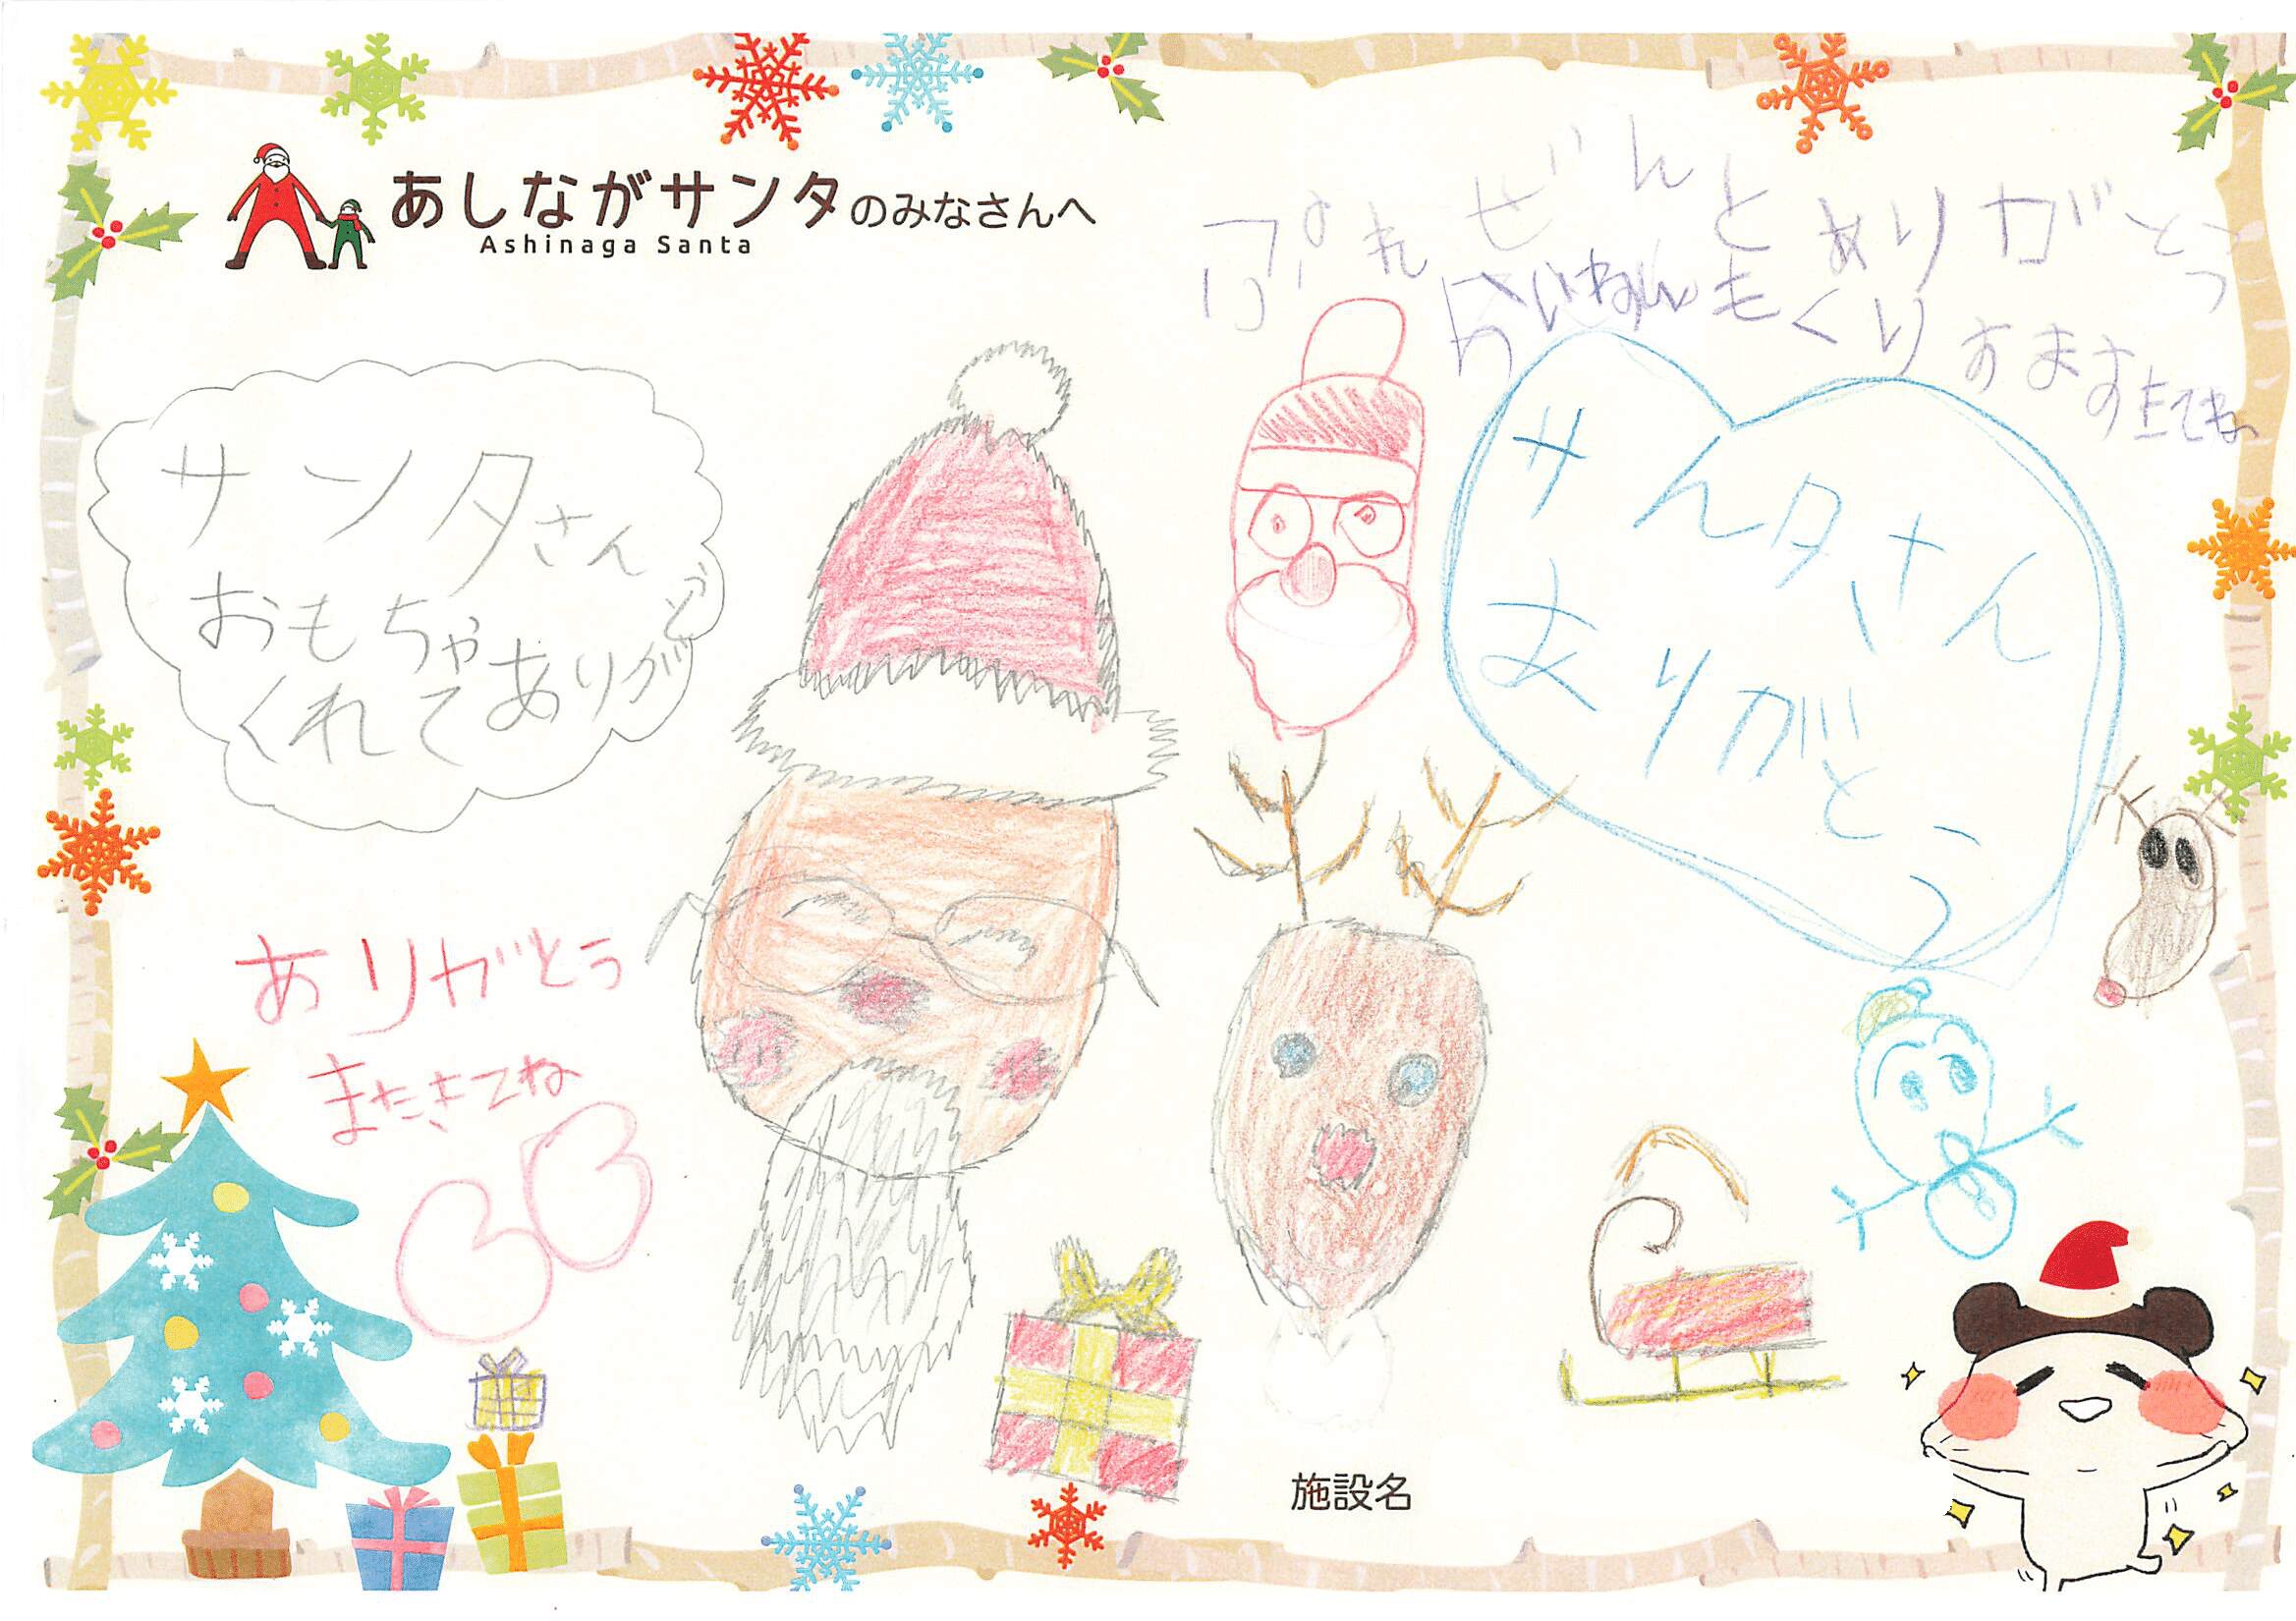 あしながサンタのみなさんへ
Ashinaga Santa
ぷれぜんとありがとう
らいねんもくりすますきてね
サンタさん
おもちゃ
くれてありがとう
サんタさん
ありがとう
ありがとう
またきてね
施設名